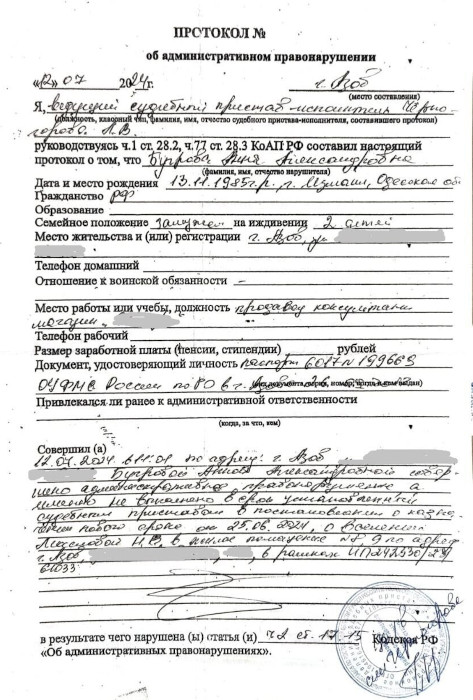 ПРОТОКОЛ №
об административном правонарушении
«12» 07 2024г. г. Азов
(место составления)
Я, ведущий судебный пристав-исполнитель Черно-
(должность, классный чин, фамилия, имя, отчество судебного пристава-исполнителя, составившего протокол)
горова Л.В.
руководствуясь ч.1 ст. 28.2, ч.77 ст. 28.3 КоАП РФ составил настоящий
протокол о том, что Бугрова Анна Александровна
(фамилия, имя, отчество нарушителя)
Дата и место рождения 13.11.1985г.р., г. Измаил, Одесской об
Гражданство РФ
Образование
Семейное положение замужем на иждивении 2 детей
Место жительства и (или) регистрации г. Азов, ул
Телефон домашний
Отношение к воинской обязанности –
Место работы или учебы, должность продавец консультант
магазин
Телефон рабочий
Размер заработной платы (пенсии, стипендии) рублей
Документ, удостоверяющий личность паспорт 6017 № 199669
ОУФМС России по РО в г.
Привлекался ли ранее к административной ответственности
(когда, за что, кем)
Совершил (а)
12.07.2024 в 11:09 по адресу: г. Азов
Бугровой Анной Александровной совер-
шено административное правонарушение а
именно не выполнено в срок установленный
судебным приставом в постановлении о назна-
чении нового срока от 25.06.2024, о вселении
Н.В. в жилое помещение № 9 по адрес
г. Азов в рамках ИП 242530/23/
61033
в результате чего нарушена (ы) статья (и) ч2 ст. 17.15 Кодекса РФ
«Об административных правонарушениях».